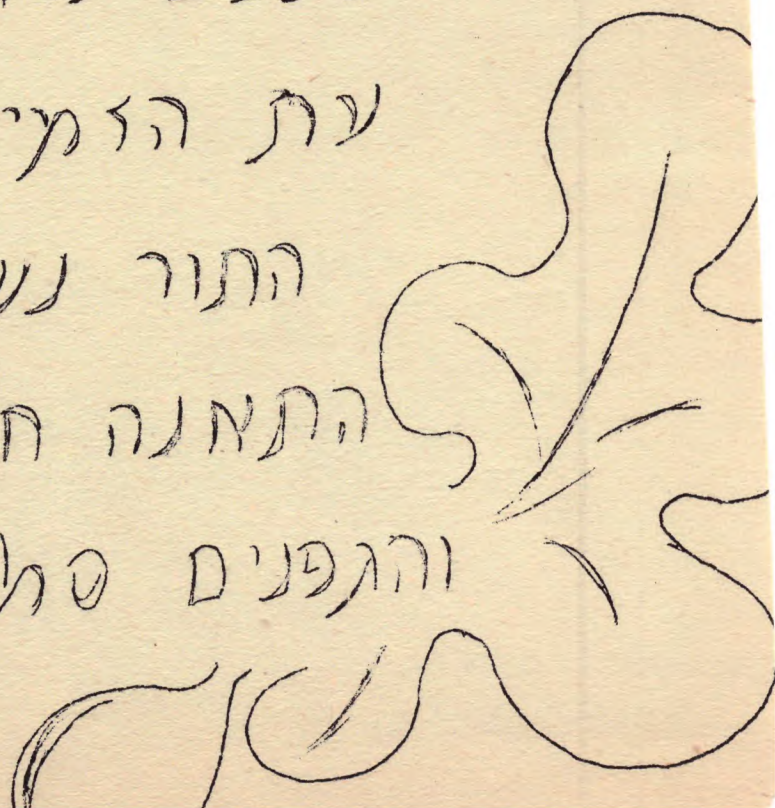 עת הזמי
התור נש
התאנה ח
והגפנים סמ